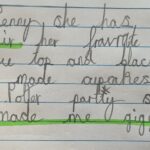 enny she has
her fravrote
top and blac
made cupakes
Potter partty s
made me gig